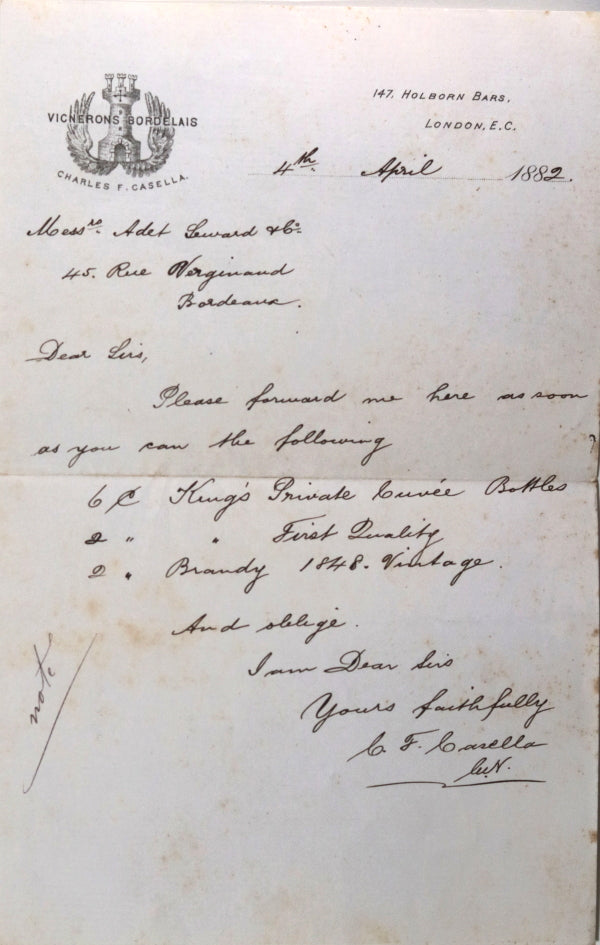 VIGNERONS BORDELAIS
CHARLES F. CASELLA.
147. HOLBORN BARS,
LONDON, E.C.
4th April 1882.
Messrs. Adet Seward & Co.
45. Rue Verginaud
Bordeaux.
Dear Sirs,
Please forward me here as soon
as you can the following
6 C King's Private Cuvée Bottles
2 " " First Quality
2 " Brandy 1848. Vintage.
And oblige.
I am Dear Sirs
Yours faithfully
C. F. Casella
note